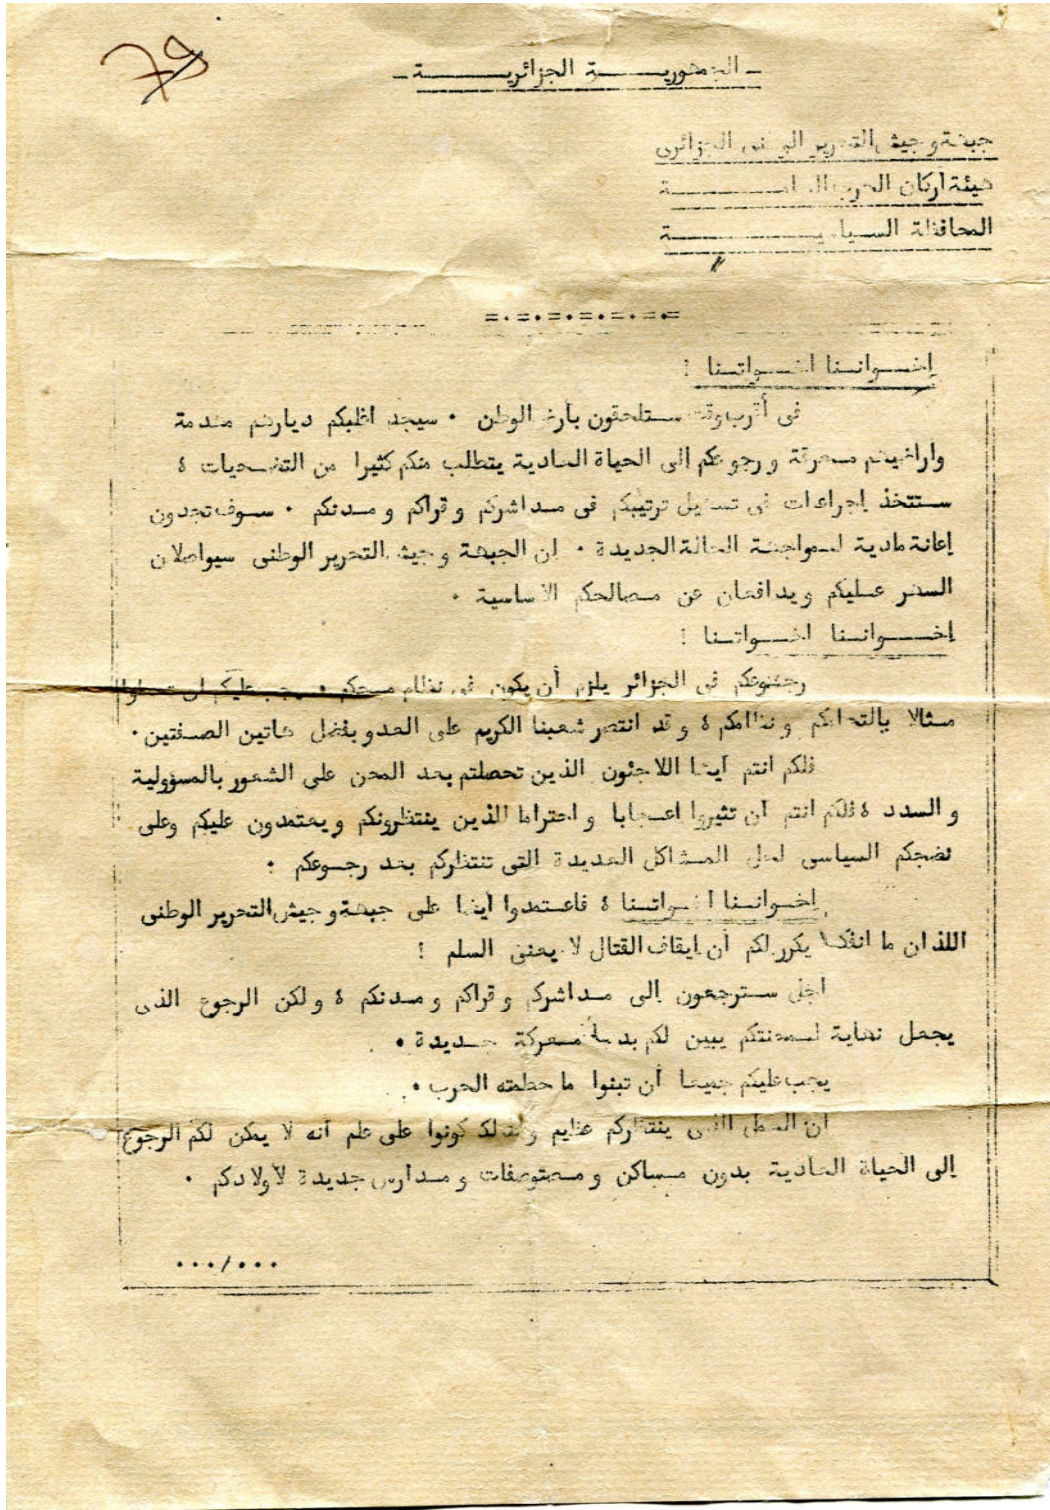 - الجمهوريـــــة الجزائريـــــــة -
جبهة و جيش التحرير الوطنى الجزائرى
هيئة اركان الحرب العامــــــــة
المحافظة السياسيــــــــــــة
=.=.=.=.=.=.=
إخــوانـنا اخــواتـنا !
فى أقرب وقت ستلحقون بأرض الوطن . سيجد اغلبكم ديارهم مهدمة
واراضيهم محرقة و رجوعكم الى الحياة العادية يتطلب منكم كثيرا من التضحيات ،
ستتخذ إجراءات فى تسهيل ترتيبكم فى مداشركم و قراكم و مدنكم . سوف تجدون
إعانة مادية لمواجهة الحالة الجديدة . إن الجبهة و جيش التحرير الوطنى سيواصلان
السهر عليكم ويدافعان عن مصالحكم الاساسية .
إخــوانـنا اخــواتـنا !
رجوعكم فى الجزائر يلزم أن يكون فى نظام محكم . يجب عليكم ان تعطوا
مثالا بالتحامكم و نظامكم ، و قد انتصر شعبنا الكريم على العدو بفضل هاتين الصفتين .
فلكم انتم ايضا اللاجئون الذين تحصلتم بعد المحن على الشعور بالمسؤولية
و السدد ، فلكم انتم ان تثيروا اعجابا و احتراما للذين ينتظرونكم و يعتمدون عليكم وعلى
نضجكم السياسى لحل المشاكل العديدة التى تنتظركم بعد رجوعكم :
إخــوانـنا اخــواتـنا ، فاعتمدوا أيضا على جبهة و جيش التحرير الوطنى
اللذان ما انفكا يكرر لكم أن إيقاف القتال لا يعنى السلم !
اجل سترجعون إلى مداشركم و قراكم و مدنكم ، و لكن الرجوع الذى
يجعل نهاية لمحنتكم يبين لكم بدء معركة جديدة .
يجب عليكم جميعا أن تبنوا ما حطمته الحرب .
ان العمل الذى ينتظركم عظيم ولذلك كونوا على علم أنه لا يمكن لكم الرجوع
إلى الحياة العادية بدون مساكن و مستوصفات و مدارس جديدة لأولادكم .
.../...